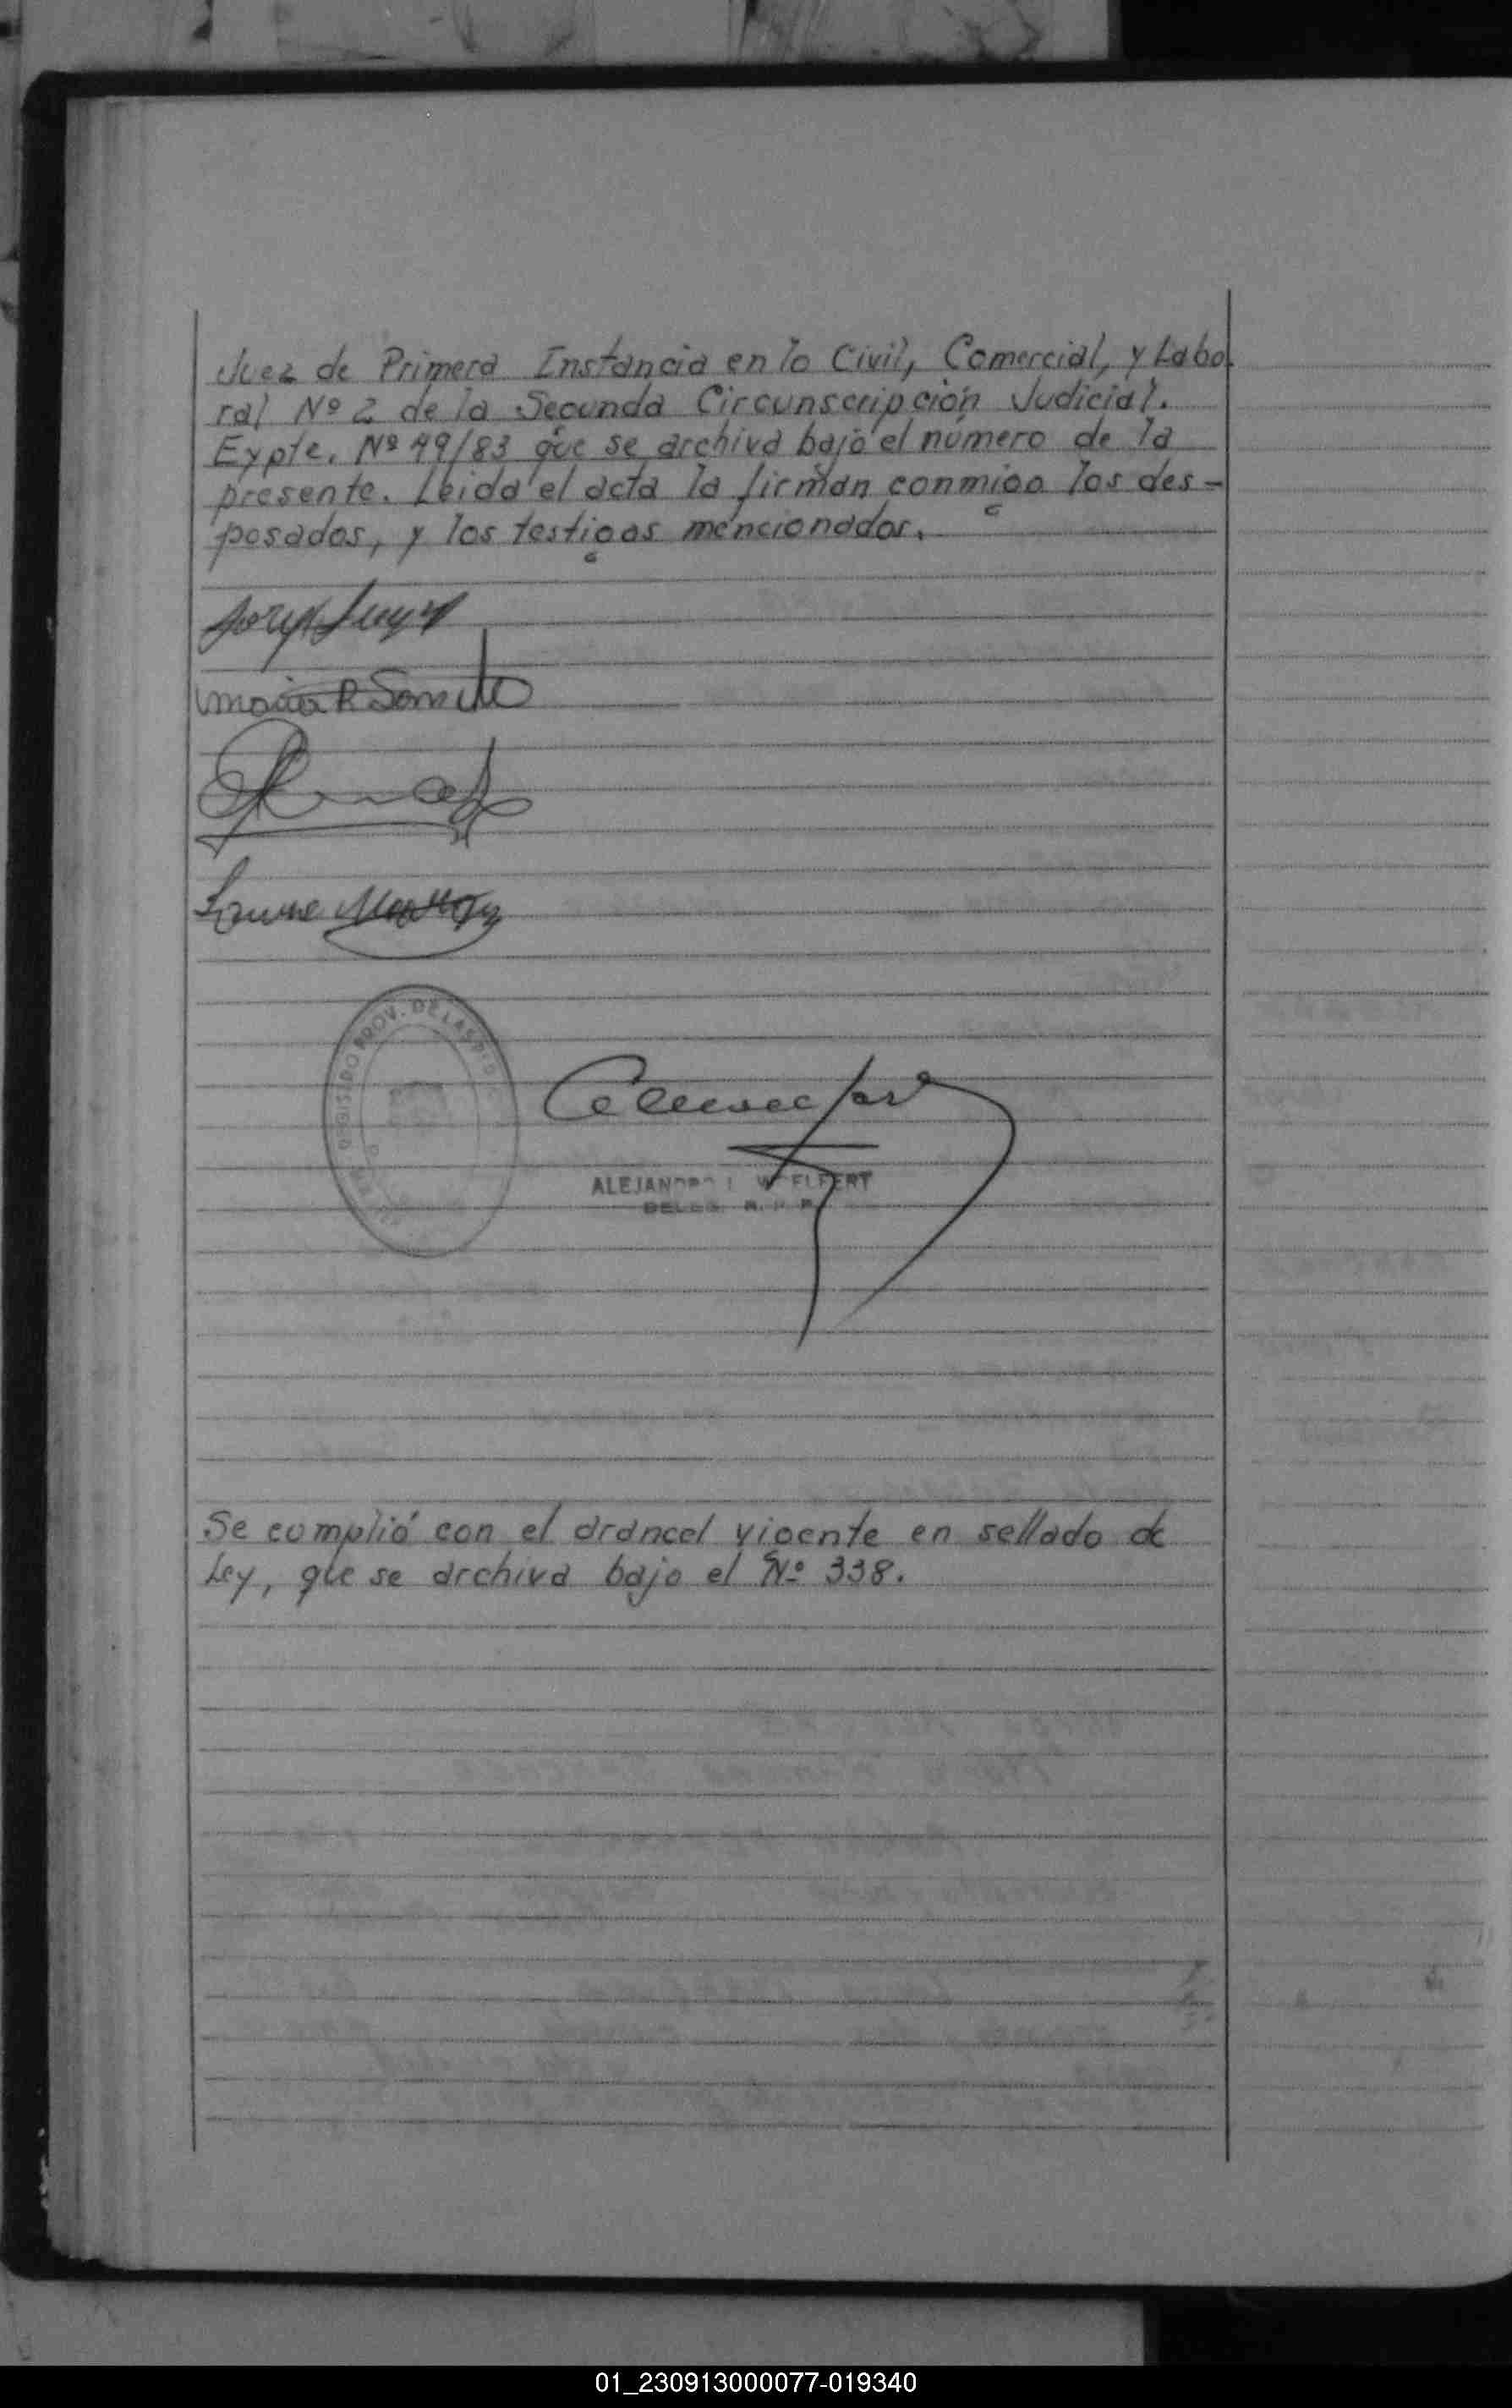 Juez de Primera Instancia en lo Civil, Comercial, y Labo
ral Nº 2 de la Segunda Circunscripción Judicial.
Expte. Nº 49/83 que se archiva bajo el número de la
presente. Leida el acta la firman conmigo los des-
posados, y los testigos mencionados.
PROV. DE LAS
ALEJANDRO L. WOELFERT
Se cumplió con el arancel vigente en sellado de
Ley, que se archiva bajo el Nº 338.
01_230913000077-019340